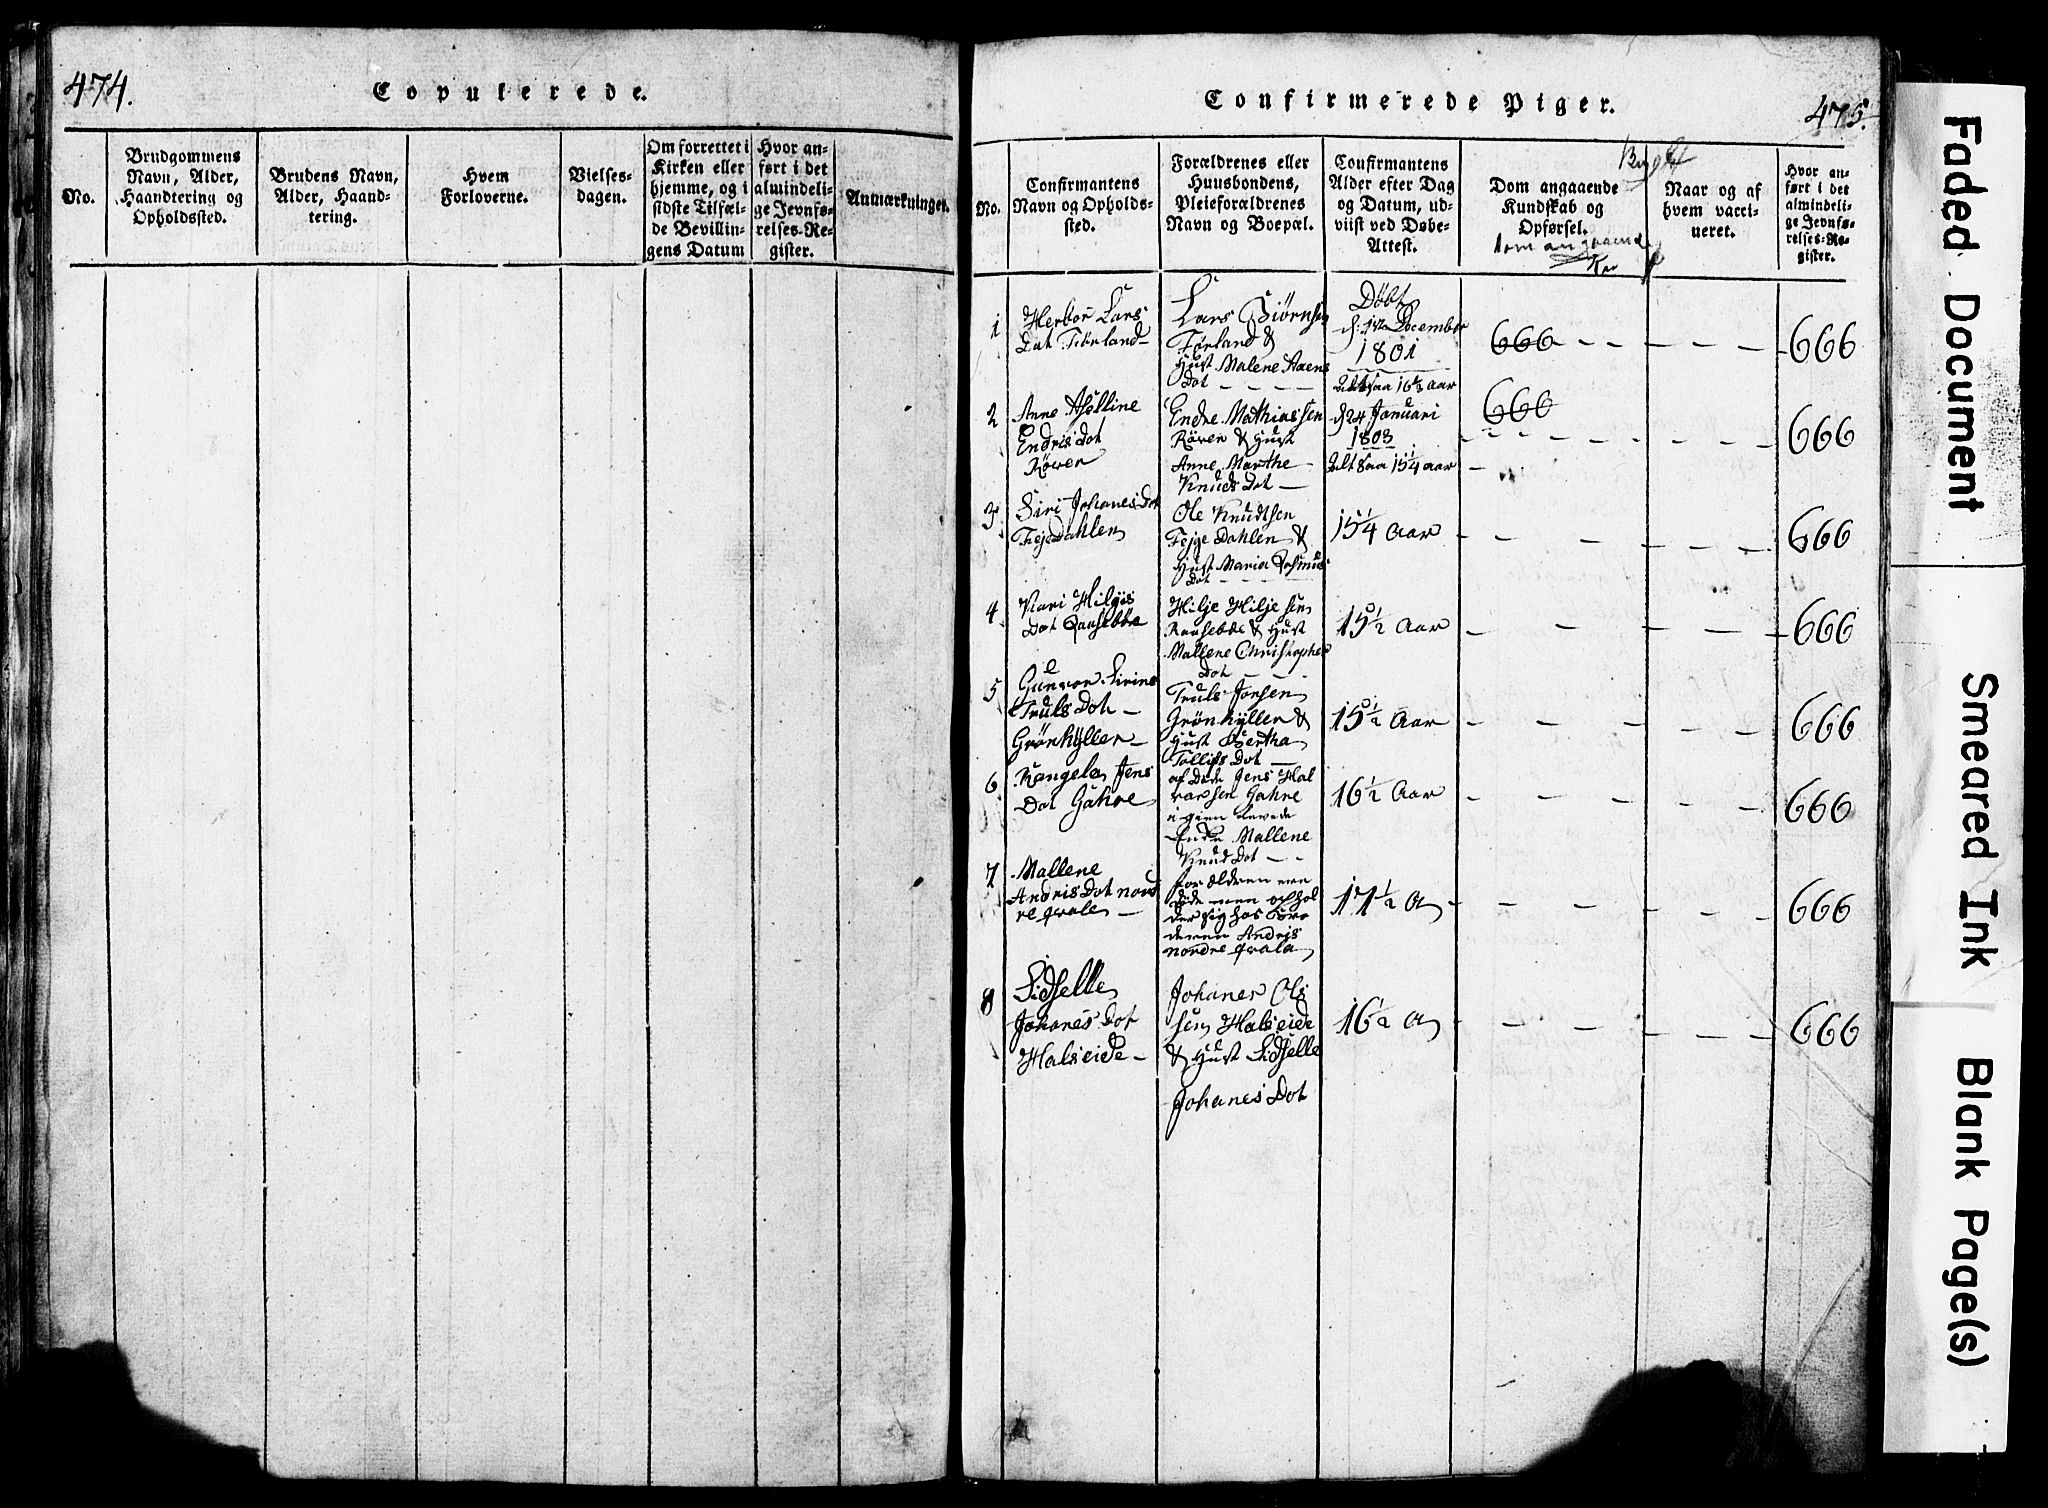 474.
Copulerede.
No.
Brudgommens
Navn, Alder,
Haandtering og
Opholdssted.
Brudens Navn,
Alder, Haand-
tering.
Hvem
Forloverne.
Vielses-
dagen.
Om forrettet i
Kirken eller
hjemme, og i
sidste Tilfæl-
de Bevillin-
gens Datum
Hvor an-
ført i det
almindeli-
ge Jevnfø-
relses-Re-
gister.
Anmærkninger.
Confirmerede Piger.
475.
No.
Confirmantens
Navn og Opholds-
sted.
Forældrenes eller
Huusbondens,
Pleieforældrenes
Navn og Boepæl.
Confirmantens
Alder efter Dag
og Datum, ud-
viist ved Døbe-
Attest.
Dom angaaende
Kundskab og
Opførsel.
Dom angaaende
Naar og af
hvem vacci-
neret.
Hvor an-
ført i det
almindeli-
ge Jevnfø-
relses-Re-
gister.
1
Herbor Lars
Dat Førland
Lars Biørnsen
Førland &
Hust Malene Aaens
Dot
Døbt
December
1801
16½ aar
666
666
2
Anne Aselline
Endris Dot
Røver
Endre Mathiassen
Røver & Hust
Anne Marthe
Knuds Dot
d 24 Januari
1803
15¼ aar
666
666
3
Siri Johanes Dot
Fejedahlen
Ole Knudtsen
Fejge Dahlen &
Hust Maria Rasmus
Dot
15¼ Aar
666
4
Kari Hilgis
Dot Raunsebøe
Hilje Hiljesen
Raunsebøe & Hust
Mallene Christopher
Dot
15½ Aar
666
5
Gunvor Sirine
Truls Dot
Grønhyller
Truls Jonsen
Grønhyller &
Hust Bertha
Tollifs Dot
15½ Aar
666
6
Rangela Jens
Dot Gahre
af Døde Jens Hal
varsen Gahre
Mallene
Knud Dot
16½ Aar
666
7
Mallene
Andris Dot nord
re qvale
forældren ere
døde men ophol
der sig hos
Andris
nordre qvala
17½ A
666
8
Sidselle
Johanes Dot
Halseide
Johanes Ols
sen Halseide
& Hust Sidselle
Johanes Dot
16½ A
666
Faded Document
Smeared Ink
Blank Page(s)